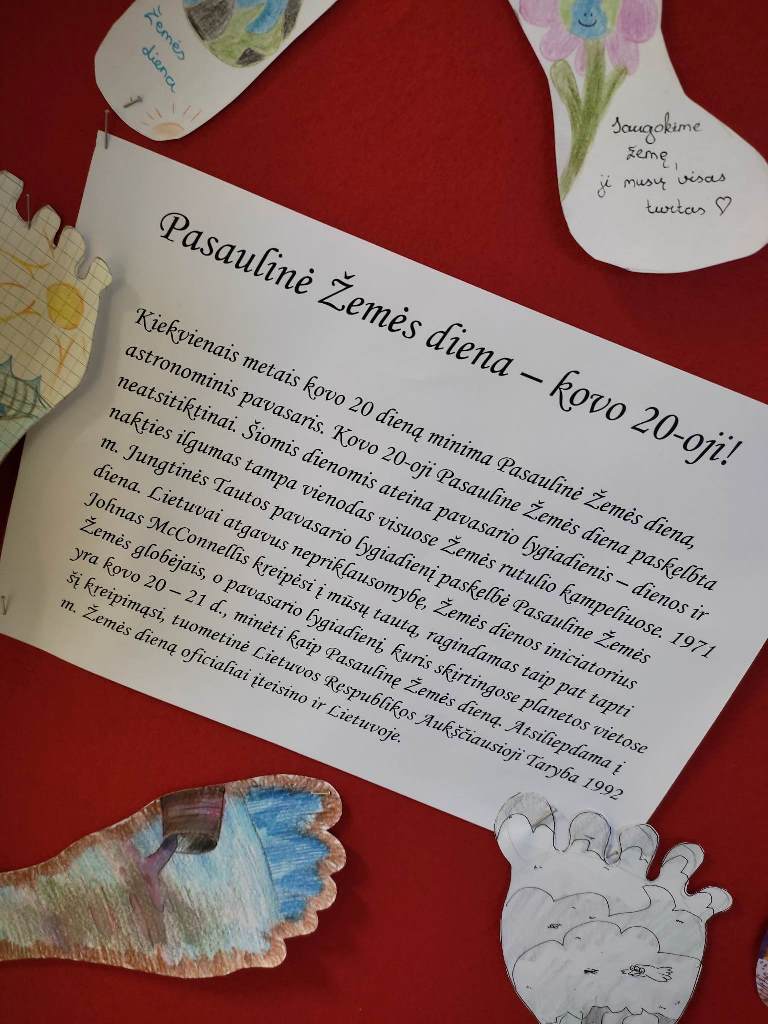 Žemės
diena
Saugokime
žemę,
ji musų visas
turtas ♡
Pasaulinė Žemės diena – kovo 20-oji!
Kiekvienais metais kovo 20 dieną minima Pasaulinė Žemės diena,
astronominis pavasaris. Kovo 20-oji Pasauline Žemės diena paskelbta
neatsitiktinai. Šiomis dienomis ateina pavasario lygiadienis – dienos ir
nakties ilgumas tampa vienodas visuose Žemės rutulio kampeliuose. 1971
m. Jungtinės Tautos pavasario lygiadienį paskelbė Pasauline Žemės
diena. Lietuvai atgavus nepriklausomybę, Žemės dienos iniciatorius
Johnas McConnellis kreipėsi į mūsų tautą, ragindamas taip pat tapti
Žemės globėjais, o pavasario lygiadienį, kuris skirtingose planetos vietose
yra kovo 20 – 21 d., minėti kaip Pasaulinę Žemės dieną. Atsiliepdama į
šį kreipimąsi, tuometinė Lietuvos Respublikos Aukščiausioji Taryba 1992
m. Žemės dieną oficialiai įteisino ir Lietuvoje.